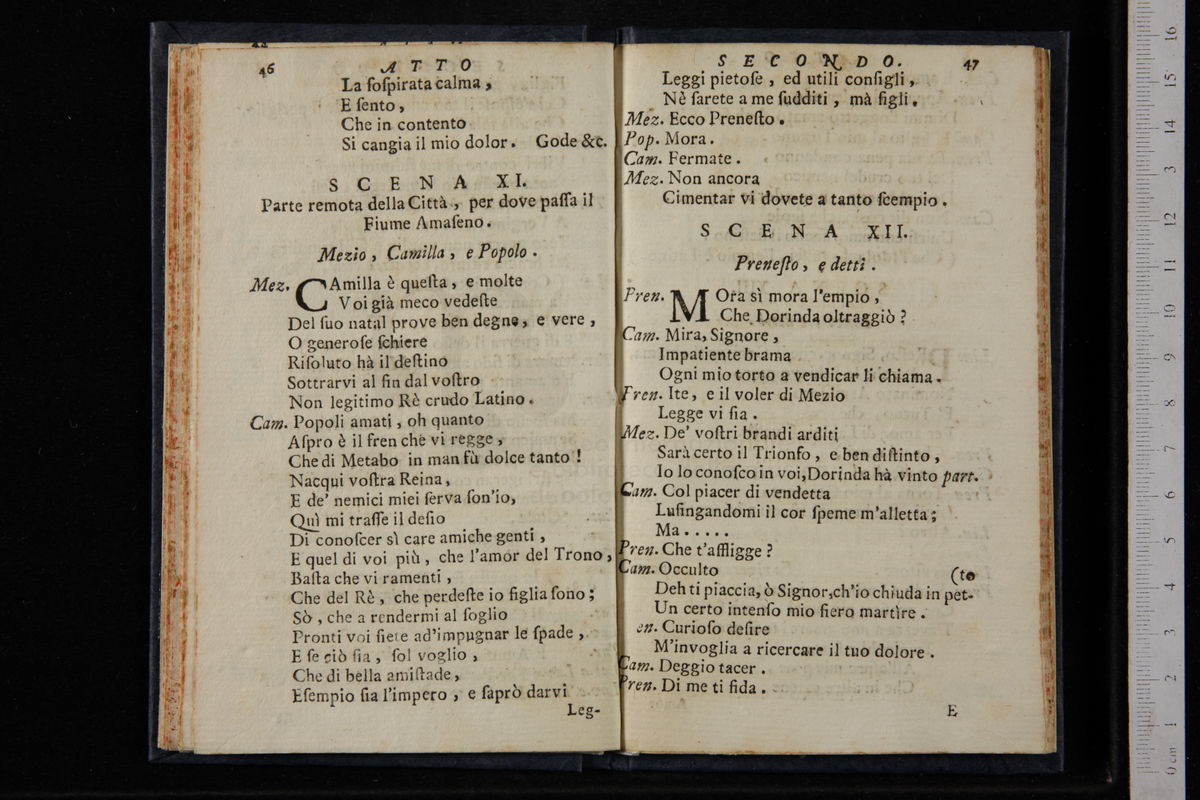 46 ATTO
La ſoſpirata calma,
E ſento,
Che in contento
Si cangia il mio dolor. Gode &c.
SCENA XI.
Parte remota della Città, per dove paſſa il
Fiume Amaſeno.
Mezio, Camilla, e Popolo.
Mez. CAmilla è queſta, e molte
Voi già meco vedeſte
Del ſuo natal prove ben degne, e vere,
O generoſe ſchiere
Riſoluto hà il deſtino
Sottrarvi al fin dal voſtro
Non legitimo Rè crudo Latino.
Cam. Popoli amati, oh quanto
Aſpro è il fren chè vi regge,
Che di Metabo in man fù dolce tanto!
Nacqui voſtra Reina,
E de' nemici miei ſerva ſon'io,
Quì mi traſſe il deſio
Di conoſcer sì care amiche genti,
E quel di voi più, che l'amor del Trono,
Baſta che vi ramenti,
Che del Rè, che perdeſte io figlia ſono;
Sò, che a rendermi al ſoglio
Pronti voi ſiete ad'impugnar le ſpade,
E ſe ciò ſia, ſol voglio,
Che di bella amiſtade,
Eſempio ſia l'impero, e ſaprò darvi
Leg-
SECONDO. 47
Leggi pietoſe, ed utili conſigli,
Nè ſarete a me ſudditi, mà figli.
Mez. Ecco Preneſto.
Pop. Mora.
Cam. Fermate.
Mez. Non ancora
Cimentar vi dovete a tanto ſcempio.
SCENA XII.
Preneſto, e detti.
Pren. MOra sì mora l'empio,
Che Dorinda oltraggiò?
Cam. Mira, Signore,
Impatiente brama
Ogni mio torto a vendicar li chiama.
Pren. Ite, e il voler di Mezio
Legge vi ſia.
Mez. De' voſtri brandi arditi
Sarà certo il Trionfo, e ben diſtinto,
Io lo conoſco in voi, Dorinda hà vinto part.
Cam. Col piacer di vendetta
Luſingandomi il cor ſpeme m'alletta;
Ma.....
Pren. Che t'affligge?
Cam. Occulto (to
Deh ti piaccia, ò Signor, ch'io chiuda in pet-
Un certo intenſo mio fiero martìre.
en. Curioſo deſire
M'invoglia a ricercare il tuo dolore.
Cam. Deggio tacer.
Pren. Di me ti fida.
E
0 cm 1 2 3 4 5 6 7 8 9 10 11 12 13 14 15 16